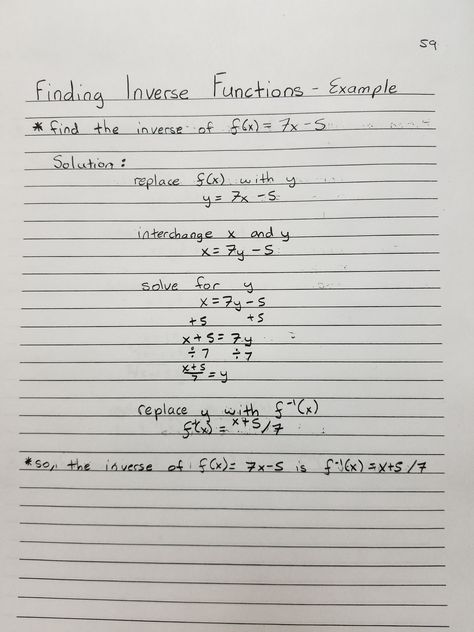 59
Finding Inverse Functions - Example
* find the inverse of f(x) = 7x - 5
Solution:
replace f(x) with y
y = 7x - 5
interchange x and y
x = 7y - 5
solve for y
x = 7y - 5
+5 +5
x + 5 = 7y
÷7 ÷7
x+5/7 = y
replace y with f⁻¹(x)
f⁻¹(x) = x+5/7
* so, the inverse of f(x) = 7x-5 is f⁻¹(x) = x+5/7